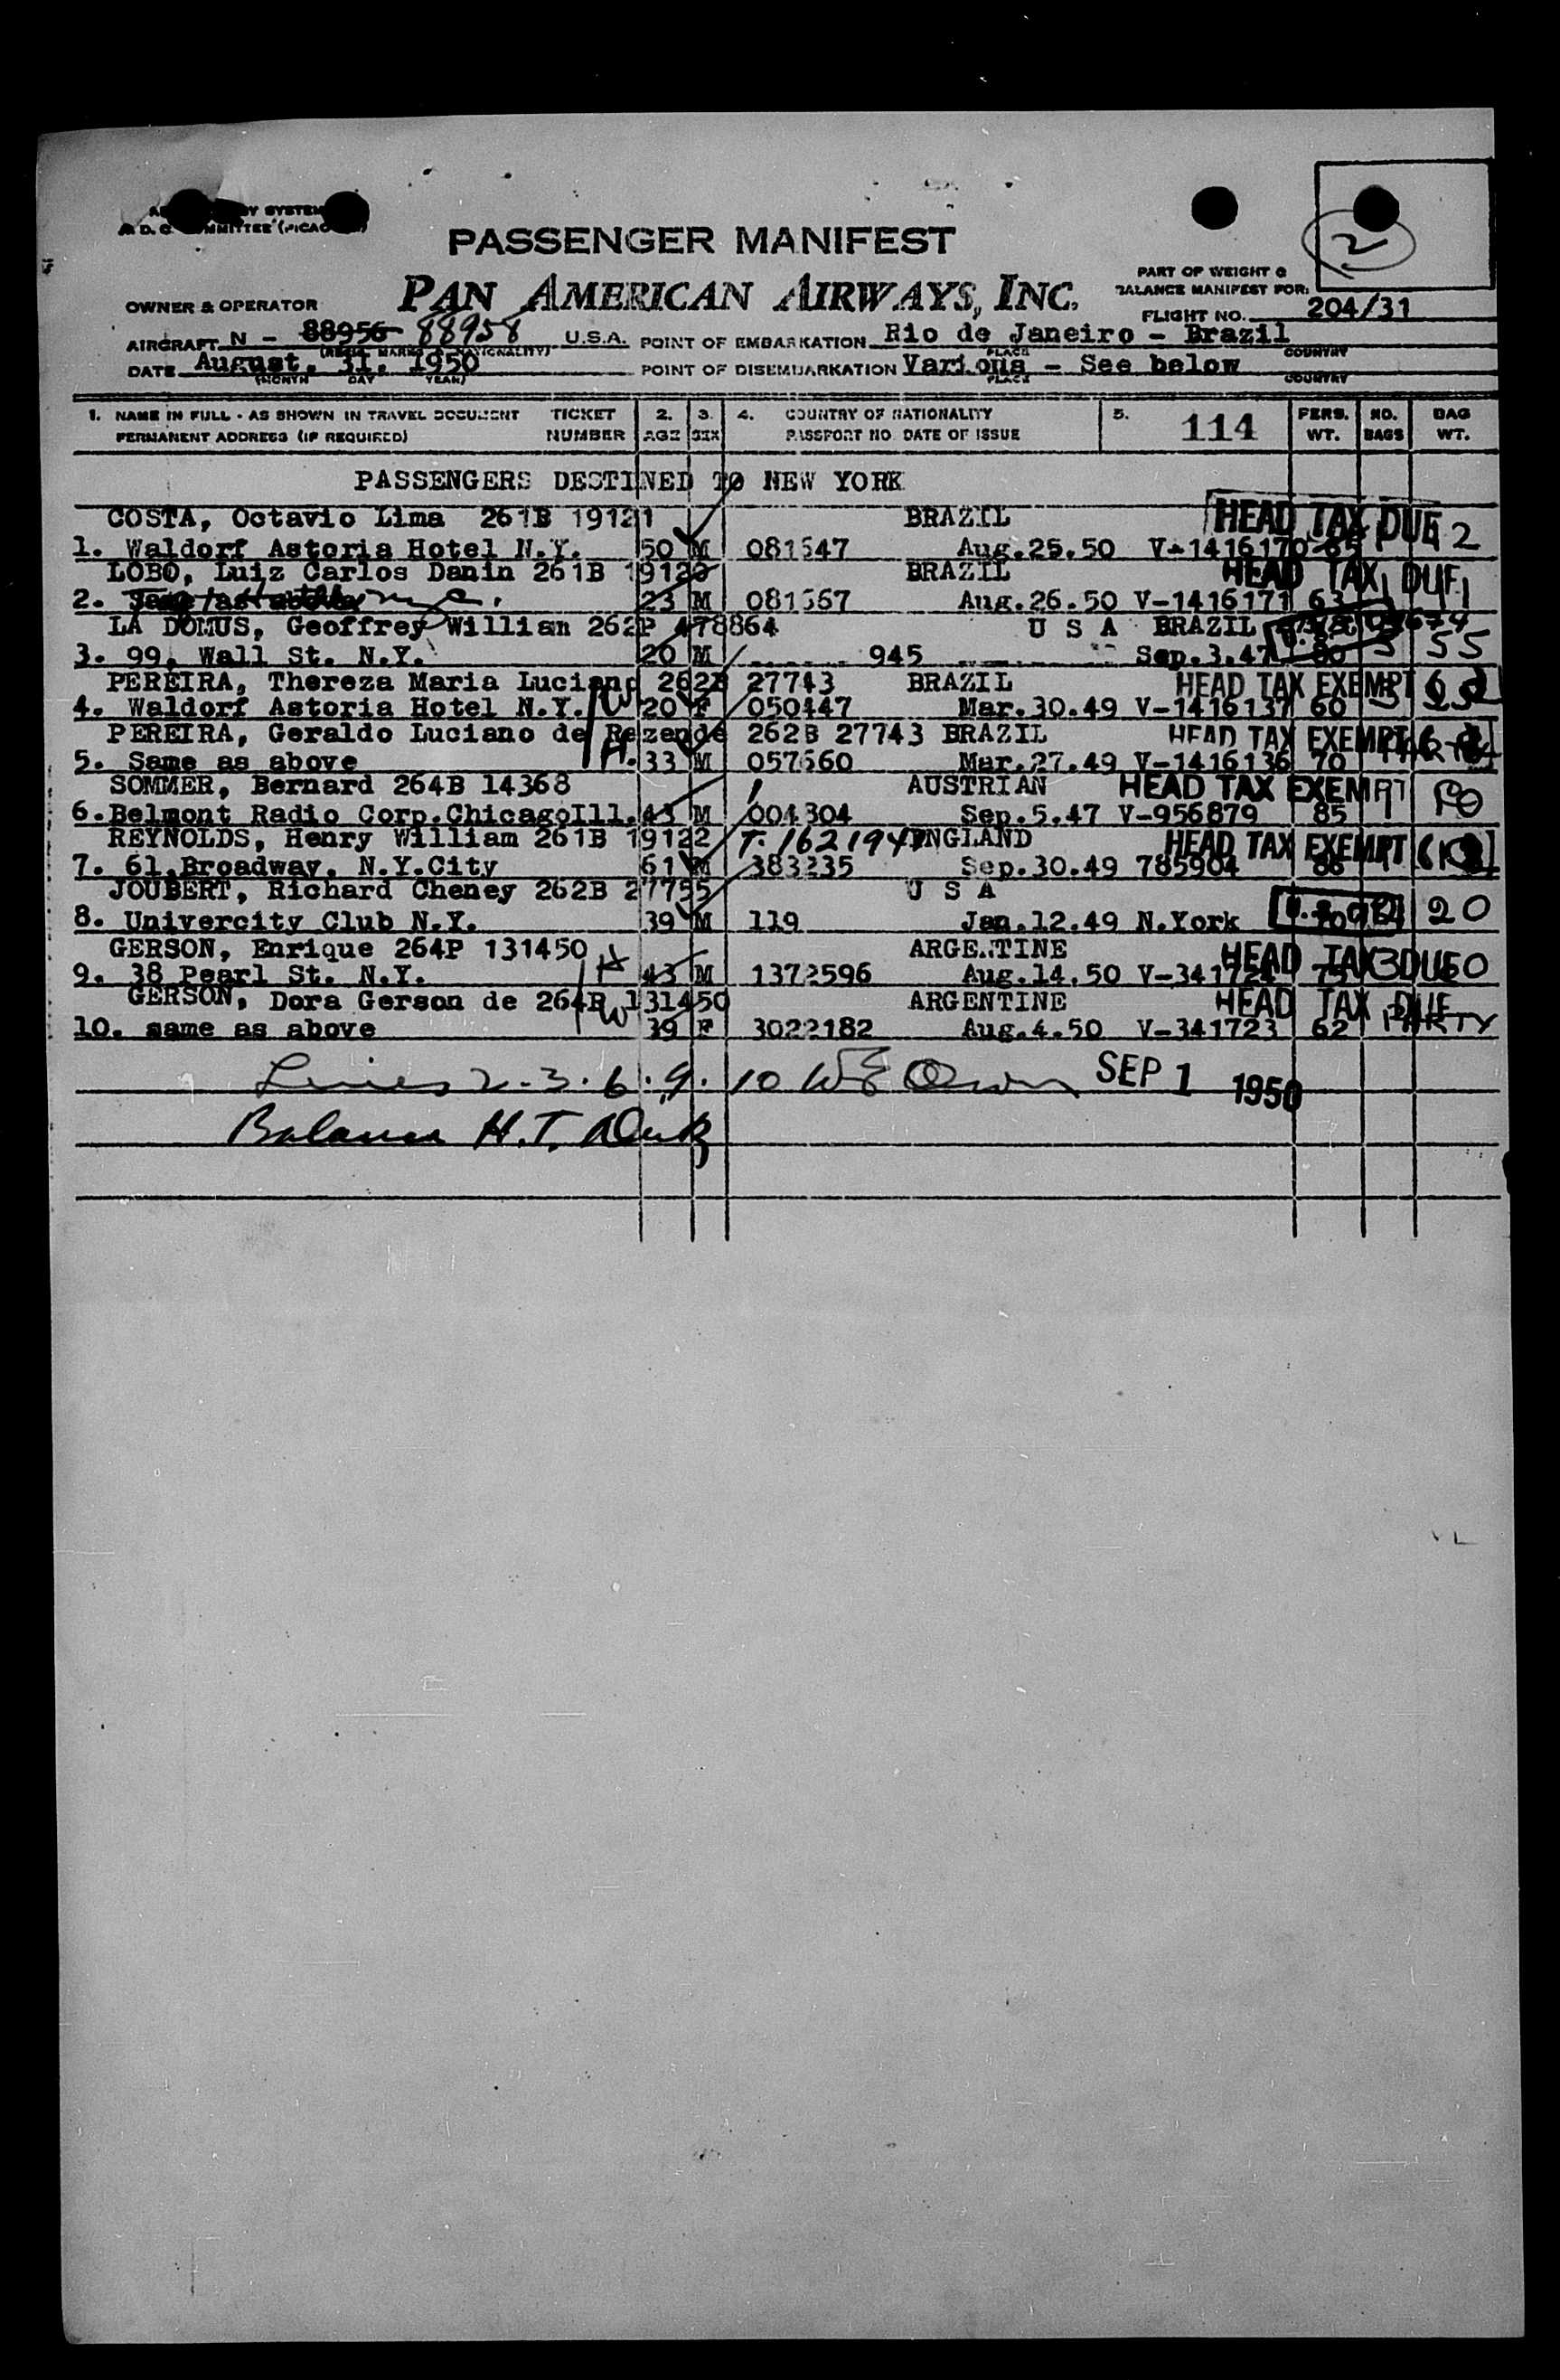 PASSENGER MANIFEST
PAN AMERICAN AIRWAYS, INC.
PART OF WEIGHT &
BALANCE MANIFEST FOR:
OWNER & OPERATOR
FLIGHT NO. 204/31
AIRCRAFT N - 88956 88958 U.S.A. POINT OF EMBARKATION Rio de Janeiro - Brazil
PLACE COUNTRY
DATE August. 31, 1950 POINT OF DISEMBARKATION Various - See below
(MONTH DAY YEAR) PLACE COUNTRY
1. NAME IN FULL - AS SHOWN IN TRAVEL DOCUMENT TICKET 2. 3. 4. COUNTRY OF NATIONALITY 5. 114 PERS. NO. BAG
PERMANENT ADDRESS (IF REQUIRED) NUMBER AGE SEX PASSPORT NO. DATE OF ISSUE WT. BAGS WT.
PASSENGERS DESTINED TO NEW YORK
COSTA, Octavio Lima 261B 19121 BRAZIL HEAD TAX DUE
1. Waldorf Astoria Hotel N.Y. 50 M 081547 Aug.25.50 V-1416170 65 2
LOBO, Luiz Carlos Danin 261B 19120 BRAZIL HEAD TAX DUE
2. 23 M 081567 Aug.26.50 V-1416171 63
LA DOMUS, Geoffrey Willian 262P 478864 U S A BRAZIL
3. 99, Wall St. N.Y. 20 M 945 Sep.3.47 80 3 55
PEREIRA, Thereza Maria Luciano 262B 27743 BRAZIL HEAD TAX EXEMPT
4. Waldorf Astoria Hotel N.Y. W 20 F 050447 Mar.30.49 V-1416137 60
PEREIRA, Geraldo Luciano de Rezende 262B 27743 BRAZIL HEAD TAX EXEMPT
5. Same as above H. 33 M 057660 Mar.27.49 V-1416136 70 PARTY
SOMMER, Bernard 264B 14368 AUSTRIAN HEAD TAX EXEMPT
6. Belmont Radio Corp.ChicagoIll. 43 M 004304 Sep.5.47 V-956879 85
REYNOLDS, Henry William 261B 19122 T-1621947 ENGLAND HEAD TAX EXEMPT
7. 61,Broadway, N.Y.City 61 M 383235 Sep.30.49 785904 86
JOUBERT, Richard Cheney 262B 27755 U S A
8. Univercity Club N.Y. 39 M 119 Jan.12.49 N.York 70 20
GERSON, Enrique 264P 131450 H ARGENTINE HEAD TAX DUE
9. 38 Pearl St. N.Y. 43 M 1372596 Aug.14.50 V-341724 75 3 60
GERSON, Dora Gerson de 264P 131450 W ARGENTINE HEAD TAX DUE
10. same as above 39 F 3022182 Aug.4.50 V-341723 62 PARTY
Lines 2.3.6.9.10 SEP 1 1950
Balance H.T.